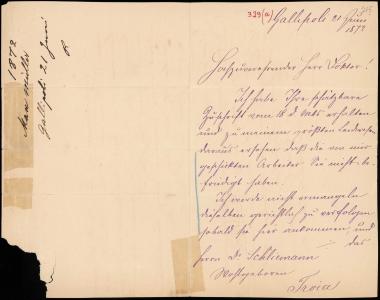 1872
Max Müller
Gallipoli 21 Juni
R
399 (a)
Gallipoli 21 Juni
1872
Hochzuverehrender Herr Doktor!
Ich habe Ihre schätzbare
Zuschrift vom 18 d. Mts erhalten
und zu meinem größten Leidwesen
daraus ersehen daß die von mir
geschickten Arbeiter Sie nicht be-
friedigt haben.
Ich werde nicht ermangeln
dieselben gerichtlich zu verfolgen
sobald sie hier ankommen und
das
Herrn Dr Schliemann
Wohlgeboren
Troia